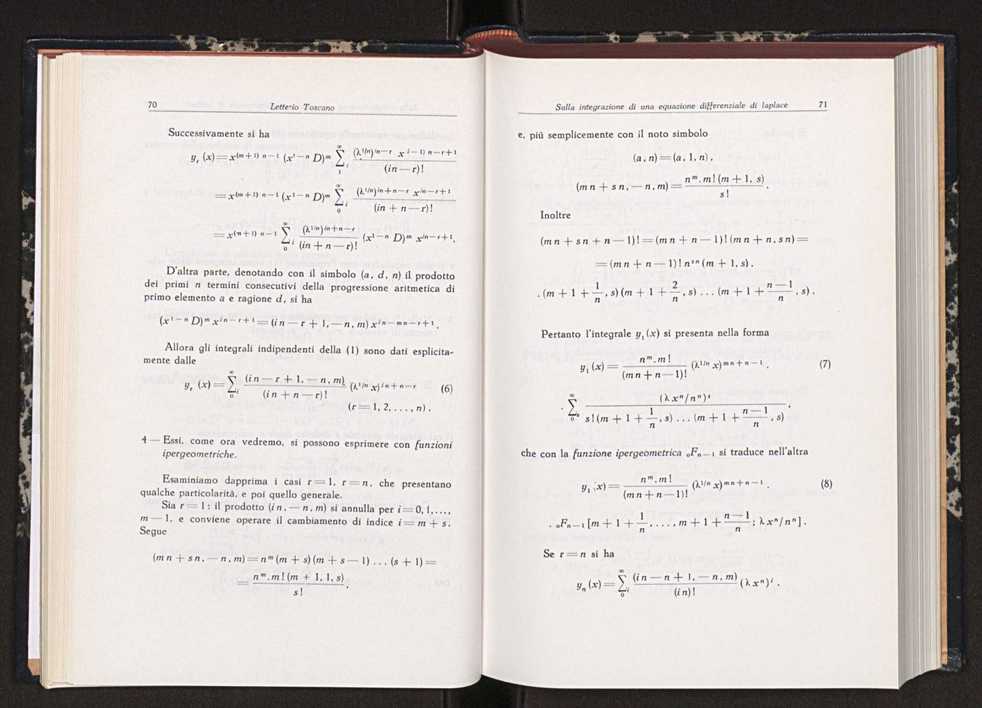 70 Letterio Toscano
Successivamente si ha
y_r (x) = x^{(m+1) n−1} (x^{1−n} D)^m ∑_{1}^{∞}_i (λ^{1/n})^{in−r} x^{(i−1) n−r+1} / (in − r)!
= x^{(m+1) n−1} (x^{1−n} D)^m ∑_{0}^{∞}_i (λ^{1/n})^{in+n−r} x^{in−r+1} / (in + n − r)!
= x^{(m+1) n−1} ∑_{0}^{∞}_i (λ^{1/n})^{in+n−r} / (in + n − r)! (x^{1−n} D)^m x^{in−r+1}.
D'altra parte, denotando con il simbolo (a, d, n) il prodotto
dei primi n termini consecutivi della progressione aritmetica di
primo elemento a e ragione d, si ha
(x^{1−n} D)^m x^{in−r+1} = (in − r + 1, − n, m) x^{in−mn−r+1}.
Allora gli integrali indipendenti della (1) sono dati esplicita-
mente dalle
y_r (x) = ∑_{0}^{∞}_i (in − r + 1, − n, m) / (in + n − r)! (λ^{1/n} x)^{in+n−r} (6)
(r = 1, 2, . . . , n).
4 — Essi, come ora vedremo, si possono esprimere con funzioni
ipergeometriche.
Esaminiamo dapprima i casi r = 1, r = n, che presentano
qualche particolarità, e poi quello generale.
Sia r = 1; il prodotto (in, − n, m) si annulla per i = 0, 1, . . . ,
m − 1, e conviene operare il cambiamento di indice i = m + s.
Segue
(mn + sn, − n, m) = n^m (m + s) (m + s − 1) . . . (s + 1) =
= n^m . m! (m + 1, 1, s) / s! ,
Sulla integrazione di una equazione differenziale di laplace 71
e, più semplicemente con il noto simbolo
(a, n) = (a, 1, n),
(mn + sn, − n, m) = n^m . m! (m + 1, s) / s! .
Inoltre
(mn + sn + n − 1)! = (mn + n − 1)! (mn + n, sn) =
= (mn + n − 1)! n^{sn} (m + 1, s) .
. (m + 1 + 1/n, s) (m + 1 + 2/n, s) . . . (m + 1 + (n − 1)/n, s) .
Pertanto l'integrale y_1 (x) si presenta nella forma
y_1 (x) = n^m . m! / (mn + n − 1)! (λ^{1/n} x)^{mn+n−1} . (7)
. ∑_{0}^{∞}_s (λ x^n / n^n)^s / s! (m + 1 + 1/n, s) . . . (m + 1 + (n − 1)/n, s) ,
che con la funzione ipergeometrica ₀F_{n−1} si traduce nell'altra
y_1 (x) = n^m . m! / (mn + n − 1)! (λ^{1/n} x)^{mn+n−1} . (8)
. ₀F_{n−1} [m + 1 + 1/n, . . . , m + 1 + (n − 1)/n ; λ x^n / n^n] .
Se r = n si ha
y_n (x) = ∑_{0}^{∞}_i (in − n + 1, − n, m) / (in)! (λ x^n)^i .